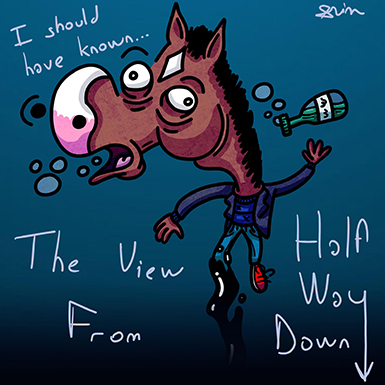 I should
have known...
The View
From
Half
Way
Down